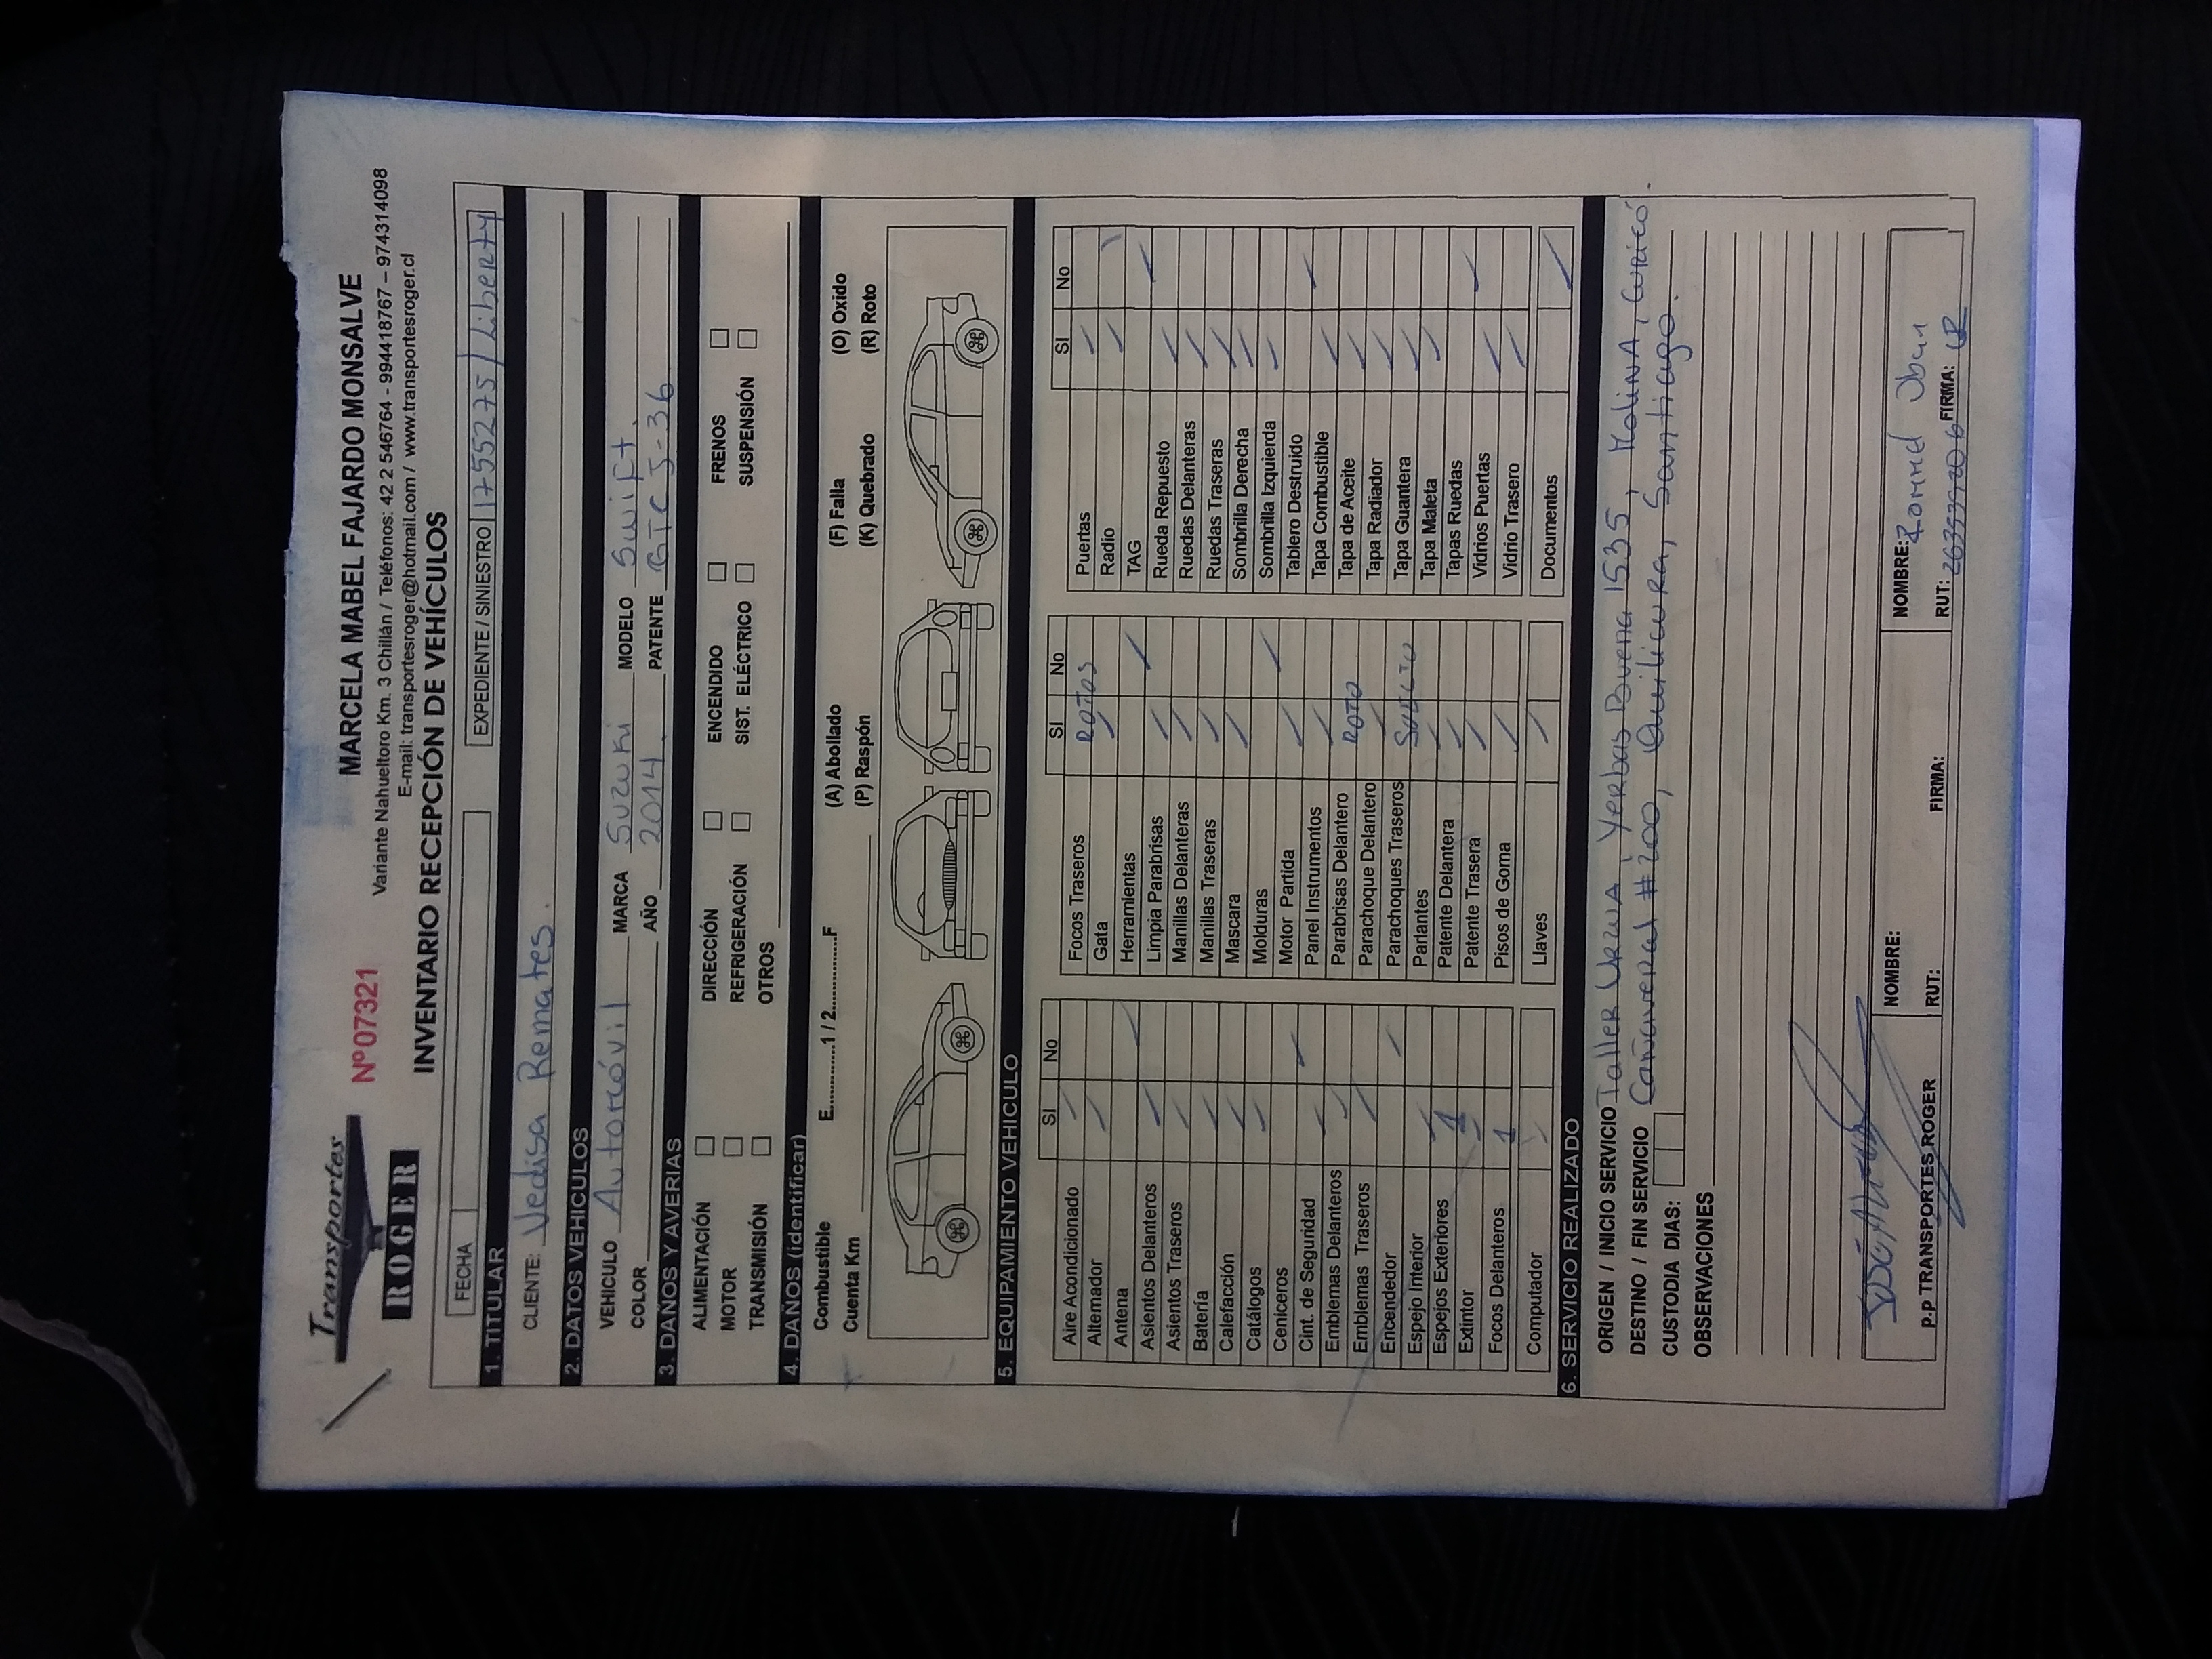 Transportes
ROGER
Nº 07321
MARCELA MABEL FAJARDO MONSALVE
Variante Nahueltoro Km. 3 Chillán / Teléfonos: 42 2 546764 - 994418767 – 974314098
E-mail: transportesroger@hotmail.com / www.transportesroger.cl
INVENTARIO RECEPCIÓN DE VEHÍCULOS
FECHA EXPEDIENTE / SINIESTRO 17555275 / Liberty
1. TITULAR
CLIENTE: Vedisa Remates.
2. DATOS VEHICULOS
VEHICULO Automóvil MARCA Suzuki MODELO Swift.
COLOR AÑO 2014. PATENTE GTCJ-36
3. DAÑOS Y AVERIAS
ALIMENTACIÓN DIRECCIÓN ENCENDIDO FRENOS
MOTOR REFRIGERACIÓN SIST. ELÉCTRICO SUSPENSIÓN
TRANSMISIÓN OTROS
4. DAÑOS (identificar)
Combustible E............1 / 2..............F (A) Abollado (F) Falla (O) Oxido
Cuenta Km (P) Raspón (K) Quebrado (R) Roto
5. EQUIPAMIENTO VEHICULO
SI No
Aire Acondicionado
Alternador
Antena
Asientos Delanteros
Asientos Traseros
Batería
Calefacción
Catálogos
Ceniceros
Cint. de Seguridad
Emblemas Delanteros
Emblemas Traseros
Encendedor
Espejo Interior
Espejos Exteriores 1
Extintor
Focos Delanteros 1
Computador
SI No
Focos Traseros ROTOS
Gata
Herramientas
Limpia Parabrisas
Manillas Delanteras
Manillas Traseras
Mascara
Molduras
Motor Partida
Panel Instrumentos
Parabrisas Delantero ROTO
Parachoque Delantero
Parachoques Traseros SUELTO
Parlantes
Patente Delantera
Patente Trasera
Pisos de Goma
Llaves
SI No
Puertas
Radio
TAG
Rueda Repuesto
Ruedas Delanteras
Ruedas Traseras
Sombrilla Derecha
Sombrilla Izquierda
Tablero Destruido
Tapa Combustible
Tapa de Aceite
Tapa Radiador
Tapa Guantera
Tapa Maleta
Tapas Ruedas
Vidrios Puertas
Vidrio Trasero
Documentos
6. SERVICIO REALIZADO
ORIGEN / INICIO SERVICIO Taller Urzua, Yerbas Buena 1535, Molina, Curicó.
DESTINO / FIN SERVICIO Cañaveral #200, Quilicura, Santiago.
CUSTODIA DIAS:
OBSERVACIONES
p.p TRANSPORTES ROGER
NOMBRE:
RUT: FIRMA:
NOMBRE:
RUT: FIRMA: